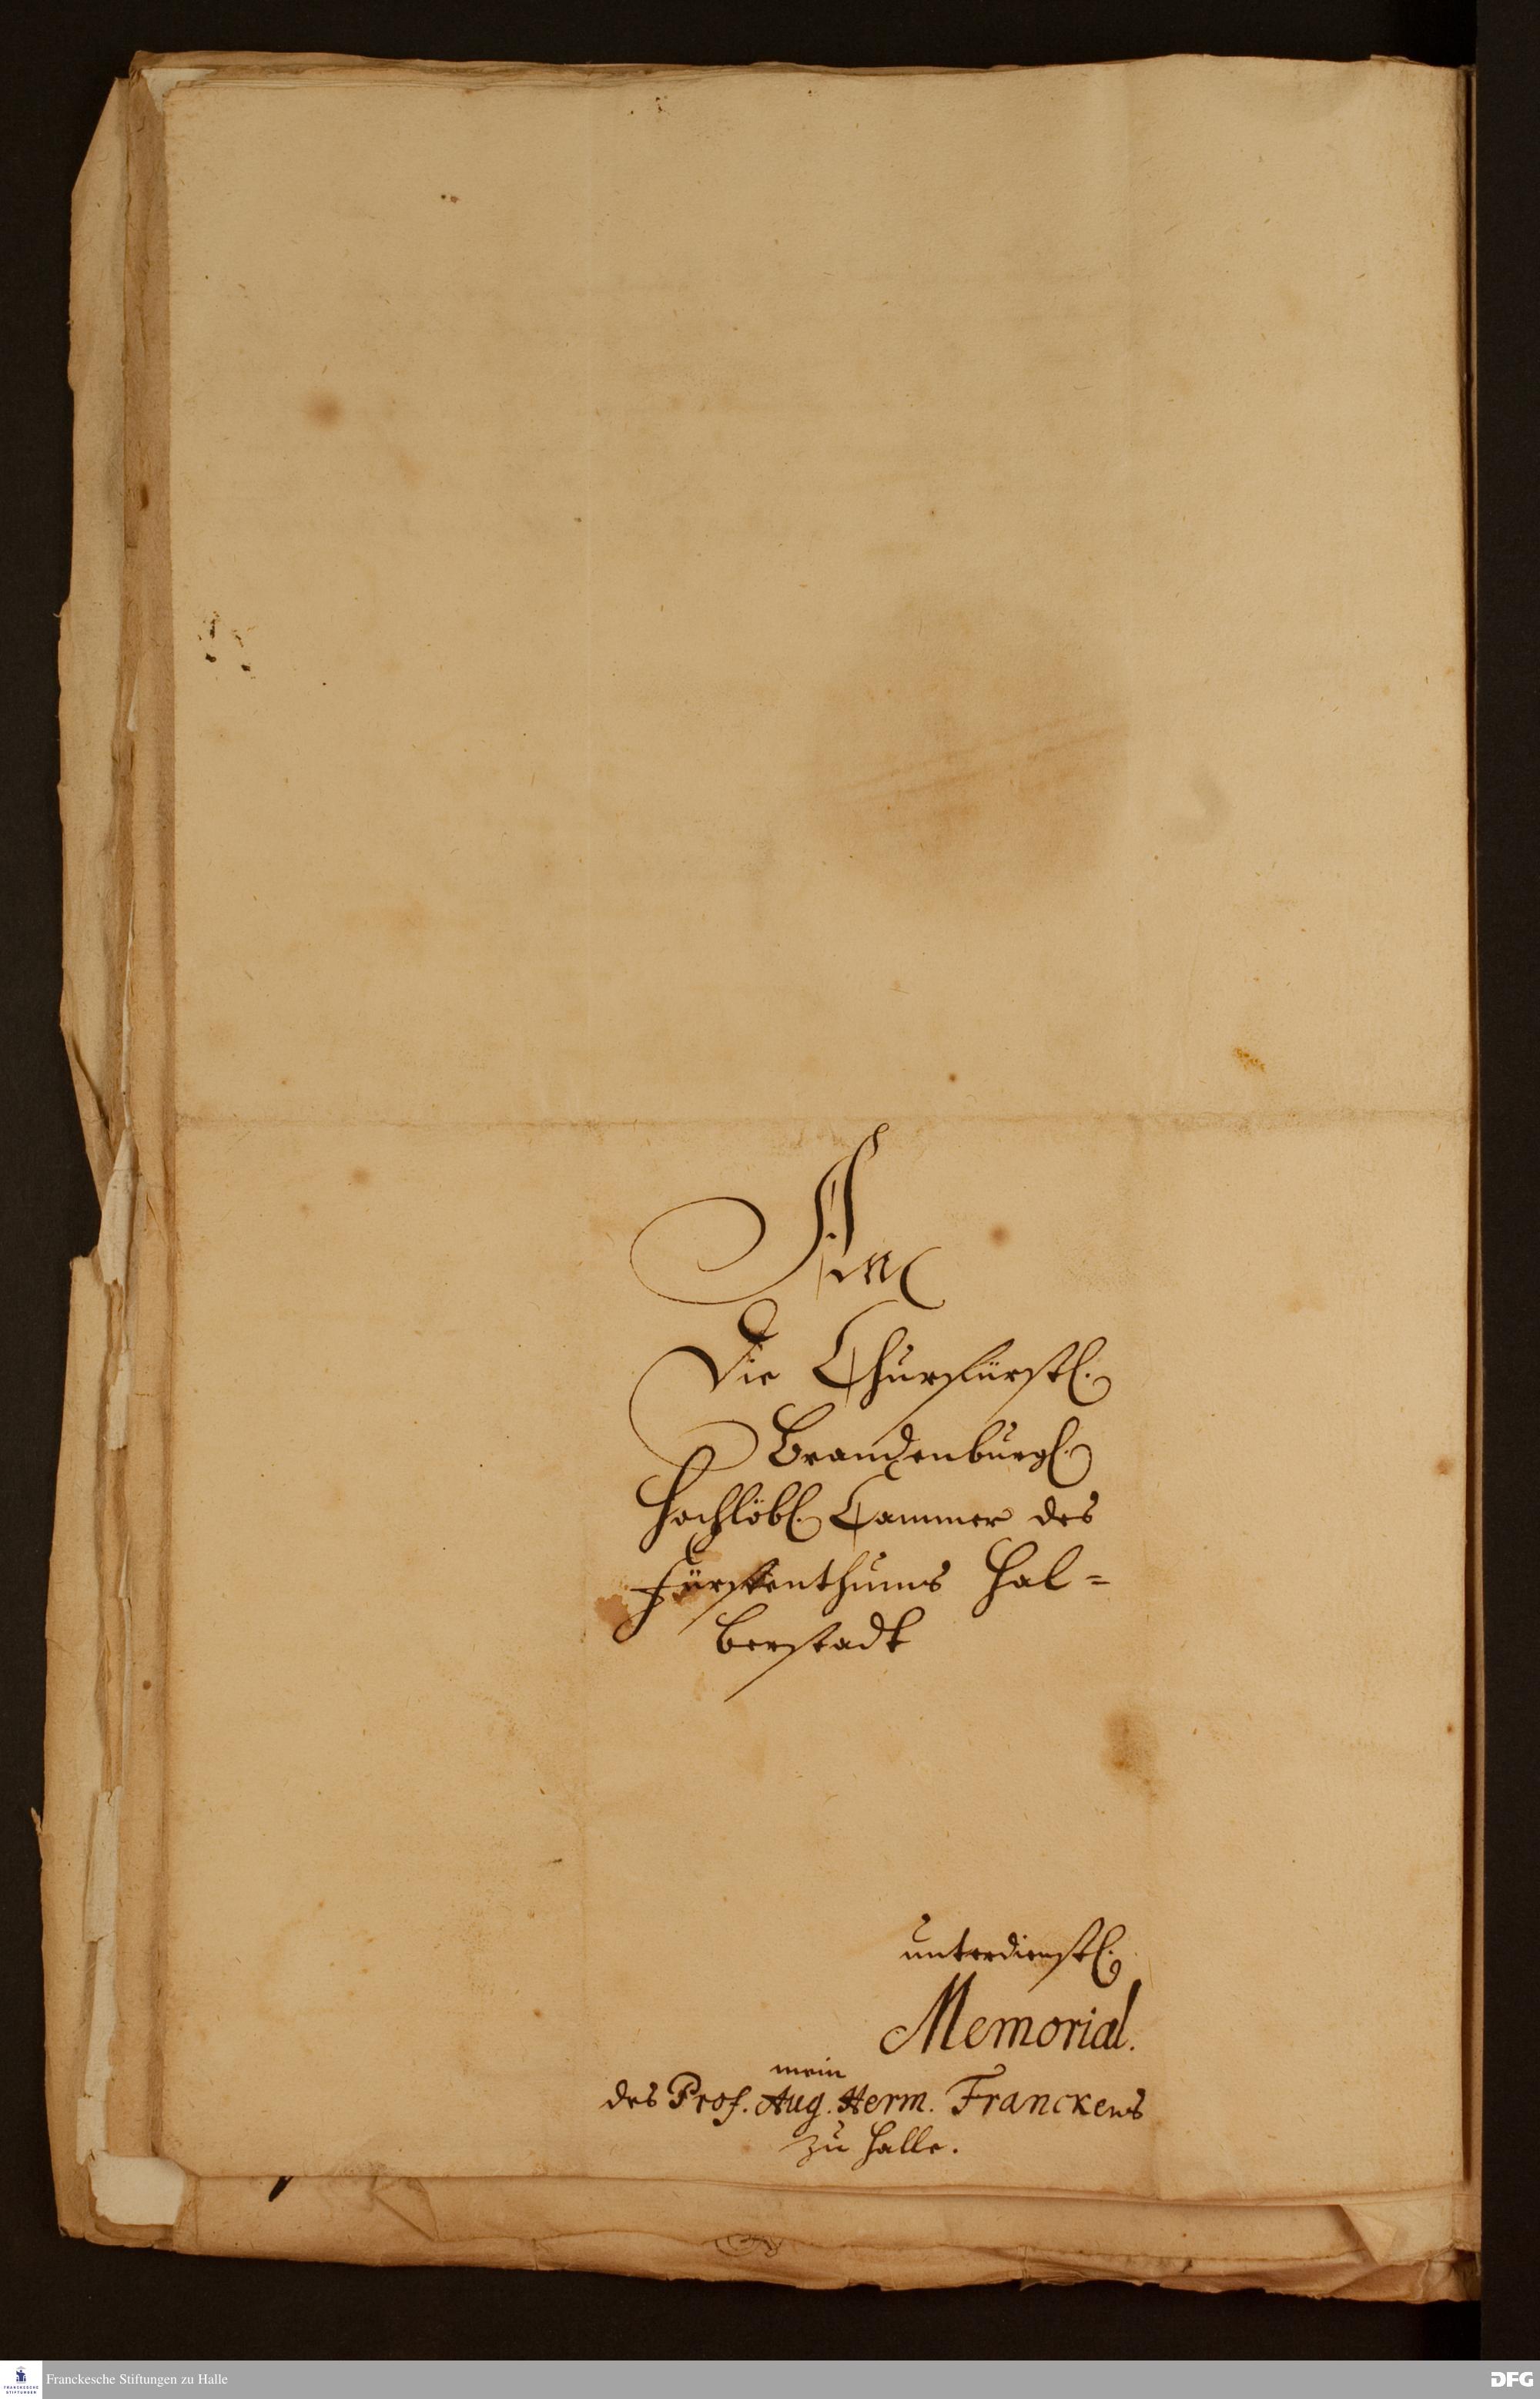 An
Die Churfürstl.
Brandenburgl.
Hochlöbl. Cammer des
Fürstenthums Hal=
berstadt
unterdienstl.
Memorial.
mein
des Prof. Aug. Herm. Franckens
zu Halle.
Franckesche Stiftungen zu Halle
FRANCKESCHE
STIFTUNGEN
DFG